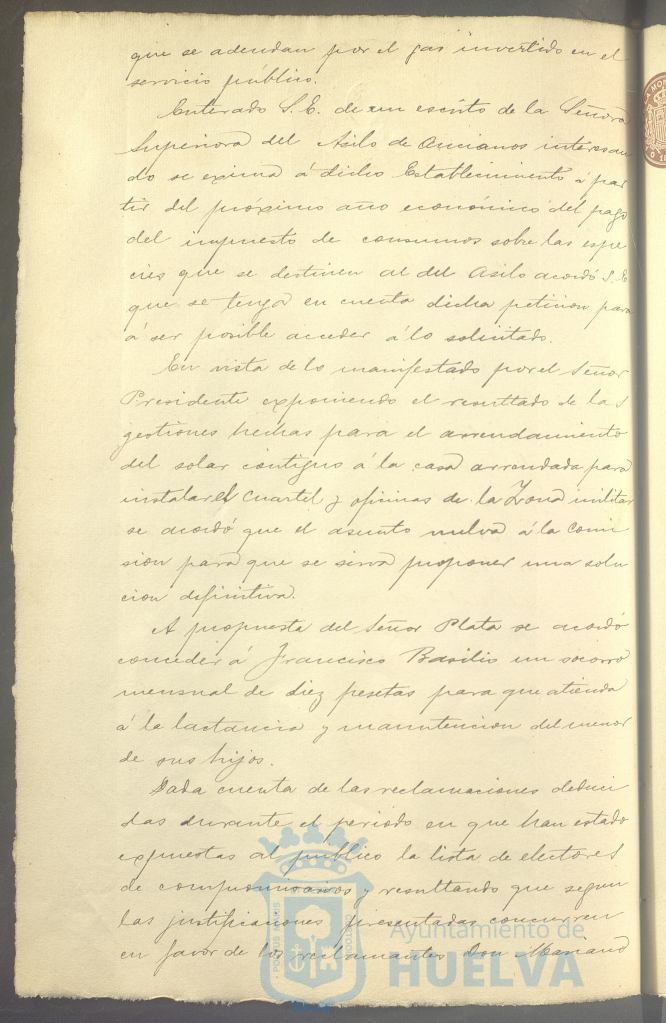 que se adeudan por el gas invertido en el
servicio público.
Enterado S. E. de un escrito de la Señora
Superiora del Asilo de Ancianos interesan
do se exima á dicho Establecimiento á par
tir del próximo año económico del pago
del impuesto de consumos sobre las espe
cies que se destinen al del Asilo acordó S. E.
que se tenga en cuenta dicha peticion para
á ser posible acceder á lo solicitado.
En vista de lo manifestado por el Señor
Presidente exponiendo el resultado de las
gestiones hechas para el arrendamiento
del solar contiguo á la casa arrendada para
instalar el Cuartel y oficinas de la Zona militar
se acordó que el asunto vuelva á la Comi
sion para que se sirva proponer una solu
cion definitiva.
A propuesta del Señor Plata se acordó
conceder á Francisco Basilio un socorro
mensual de diez pesetas para que atienda
á la lactancia y manutencion del menor
de sus hijos.
Dada cuenta de las reclamaciones deduci
das durante el periodo en que han estado
expuestas al público la lista de electores
de compromisarios y resultando que segun
las justificaciones presentadas concurren
en favor de los reclamantes Don Mariano
Ayuntamiento de
HUELVA